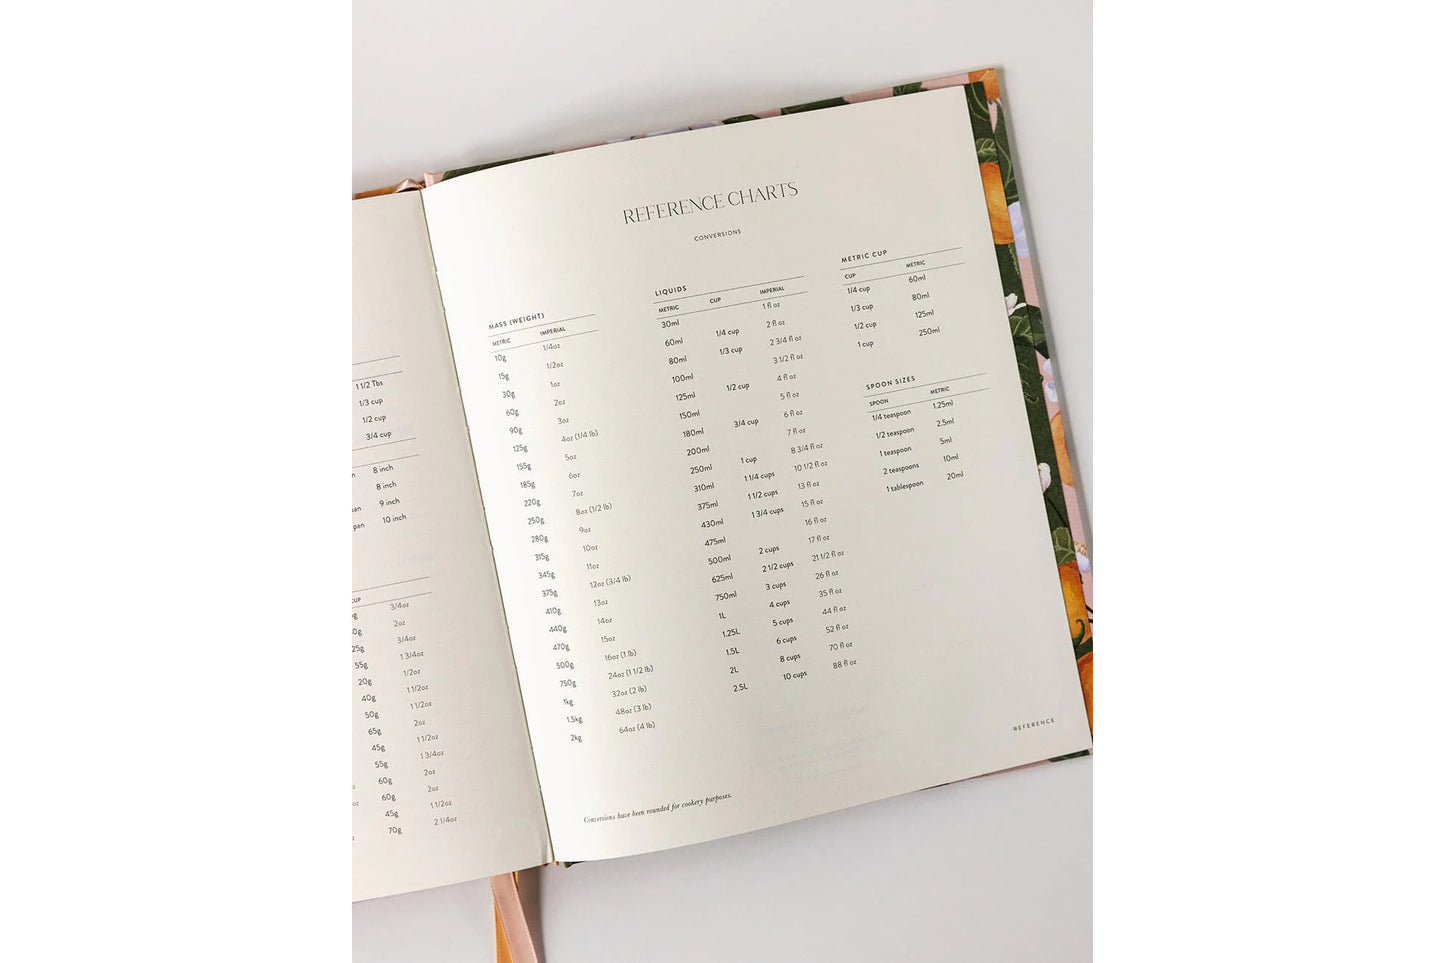 1 1/2 Tbs
1/3 cup
1/2 cup
3/4 cup
8 inch
8 inch
pan 9 inch
pan 10 inch
CUP
3/4oz
2oz
25g 3/4oz
55g 1 3/4oz
20g 1/2oz
40g 1 1/2oz
50g 1 1/2oz
65g 2oz
45g 1 1/2oz
55g 1 3/4oz
60g 2oz
60g 2oz
45g 1 1/2oz
70g 2 1/4oz
REFERENCE CHARTS
CONVERSIONS
MASS (WEIGHT)
METRIC IMPERIAL
10g 1/4oz
15g 1/2oz
30g 1oz
60g 2oz
90g 3oz
125g 4oz (1/4 lb)
155g 5oz
185g 6oz
220g 7oz
250g 8oz (1/2 lb)
280g 9oz
315g 10oz
345g 11oz
375g 12oz (3/4 lb)
410g 13oz
440g 14oz
470g 15oz
500g 16oz (1 lb)
750g 24oz (1 1/2 lb)
1kg 32oz (2 lb)
1.5kg 48oz (3 lb)
2kg 64oz (4 lb)
LIQUIDS
METRIC CUP IMPERIAL
30ml 1 fl oz
60ml 1/4 cup 2 fl oz
80ml 1/3 cup 2 3/4 fl oz
100ml 3 1/2 fl oz
125ml 1/2 cup 4 fl oz
150ml 5 fl oz
180ml 3/4 cup 6 fl oz
200ml 7 fl oz
250ml 1 cup 8 3/4 fl oz
310ml 1 1/4 cups 10 1/2 fl oz
375ml 1 1/2 cups 13 fl oz
430ml 1 3/4 cups 15 fl oz
475ml 16 fl oz
500ml 2 cups 17 fl oz
625ml 2 1/2 cups 21 1/2 fl oz
750ml 3 cups 26 fl oz
1L 4 cups 35 fl oz
1.25L 5 cups 44 fl oz
1.5L 6 cups 52 fl oz
2L 8 cups 70 fl oz
2.5L 10 cups 88 fl oz
METRIC CUP
CUP METRIC
1/4 cup 60ml
1/3 cup 80ml
1/2 cup 125ml
1 cup 250ml
SPOON SIZES
SPOON METRIC
1/4 teaspoon 1.25ml
1/2 teaspoon 2.5ml
1 teaspoon 5ml
2 teaspoons 10ml
1 tablespoon 20ml
Conversions have been rounded for cookery purposes.
REFERENCE